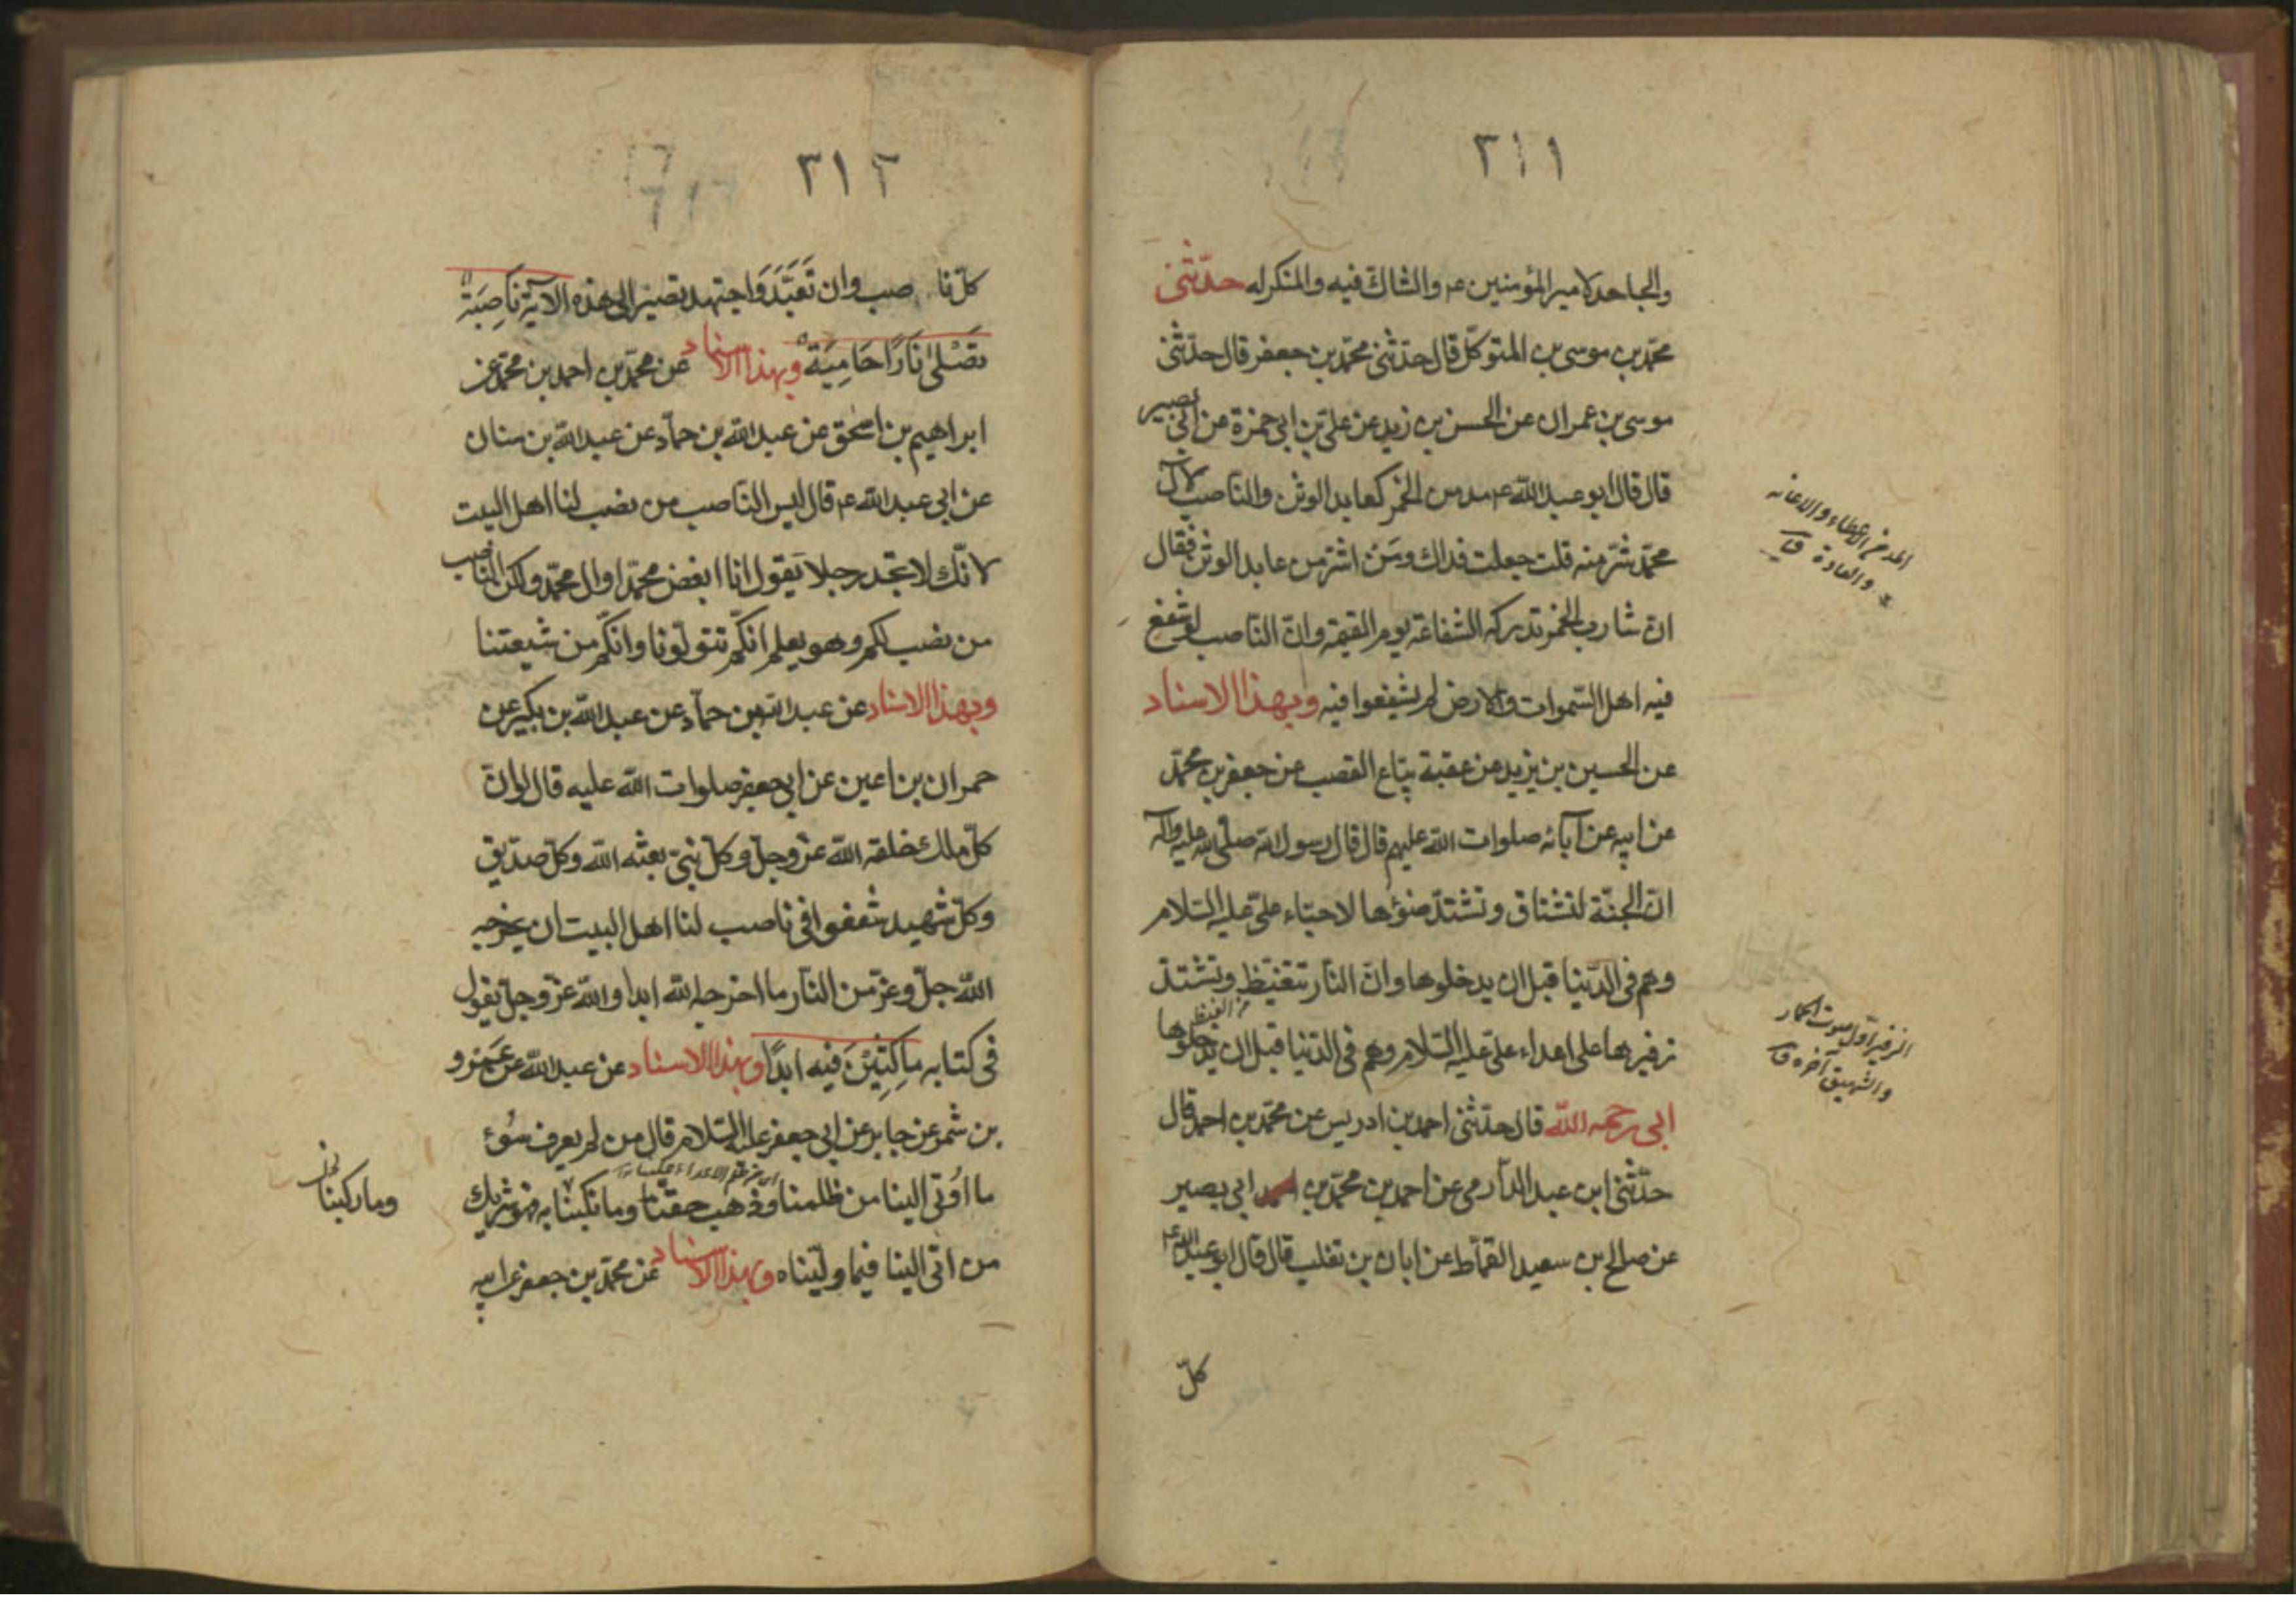 ٣١١
والجاحد لامير المؤمنين ع م والشاك فيه والمنكر له حدّثنى
محمّد بن موسى بن المتوكّل قال حدّثنى محمّد بن جعفر قال حدّثنى
موسى بن عمران عن الحسن بن زيد عن علىّ بن ابى حمزة عن ابى بصير
قال قال ابو عبد اللّه ع م مدمن الخمر كعابد الوثن والناصب لآل
محمّد شرّ منه قلت جعلت فداك ومَن اشرّ من عابد الوثن فقال
انّ شارب الخمر تدركه الشفاعة يوم القيمة وانّ النّاصب لو شفع
فيه اهل السّموات والارض لم يشفعوا فيه وبهذا الاسناد
عن الحسين بن يزيد عن عقبة بيّاع القصب عن جعفر بن محمّد
عن ابيه عن آبائه صلوات اللّه عليهم قال قال رسول اللّه صلى اللّه عليه وآله
انّ الجنّة لتشتاق وتشتدّ ضوؤها لاحبّاء علىّ عليه السّلام
وهم فى الدّنيا قبل ان يدخلوها وانّ النّار تتغيّظ وتشتدّ
من الغيظ
زفيرها على اعداء علىّ عليه السّلام وهم فى الدّنيا قبل ان يدخلوها
ابى رحمه اللّه قال حدّثنى احمد بن ادريس عن محمّد بن احمد قال
حدّثنى ابن عبد الدّارمى عن احمد بن محمّد بن ابى بصير
عن صالح بن سعيد القمّاط عن ابان بن تغلب قال قال ابو عبد اللّه ع م
كلّ
والعادة ق
الزفير اوّل صوت الحمار
والشهيق آخره ق
٣١٢
كلّ ناصب وان تَعَبَّدَ وَاجتهد يصير الى هذه الآية نَاصِبَةٌ
تَصْلى نَارًا حَامِيَةً وبهذا الاسناد عن محمّد بن احمد بن محمّد عن
ابراهيم بن اسحق عن عبد اللّه بن حمّاد عن عبد اللّه بن سنان
عن ابى عبد اللّه ع م قال ليس النّاصب من نصب لنا اهل البيت
لانّك لا تجد رجلا يقول انا ابغض محمّدا وال محمّد ولكن الناصب
من نصب لكم وهو يعلم انّكم تتولّونا وانّكم من شيعتنا
وبهذا الاسناد عن عبد اللّه بن حمّاد عن عبد اللّه بن بكير عن
حمران بن اعين عن ابى جعفر صلوات اللّه عليه قال لو انّ
كلّ ملك خلقه اللّه عزّ وجلّ وكلّ نبىّ بعثه اللّه وكلّ صدّيق
وكلّ شهيد شفعوا فى ناصب لنا اهل البيت ان يخرجه
اللّه جلّ وعزّ من النّار ما اخرجه اللّه ابدا واللّه عزّ وجلّ يقول
فى كتابه ماكِثِيْنَ فيه ابدًا وبهذا الاسناد عن عبد اللّه عن عمرو
بن شمر عن جابر عن ابى جعفر عليه السّلام قال من لم يعرف سُوء
ما اُوتى الينا من ظلمنا وذهب حقّنا وما نكبنا به فهو شريك
من اتى الينا فيما ولّيناه وبهذا الاسناد عن محمّد بن جعفر عن ابيه
وما ركبنا